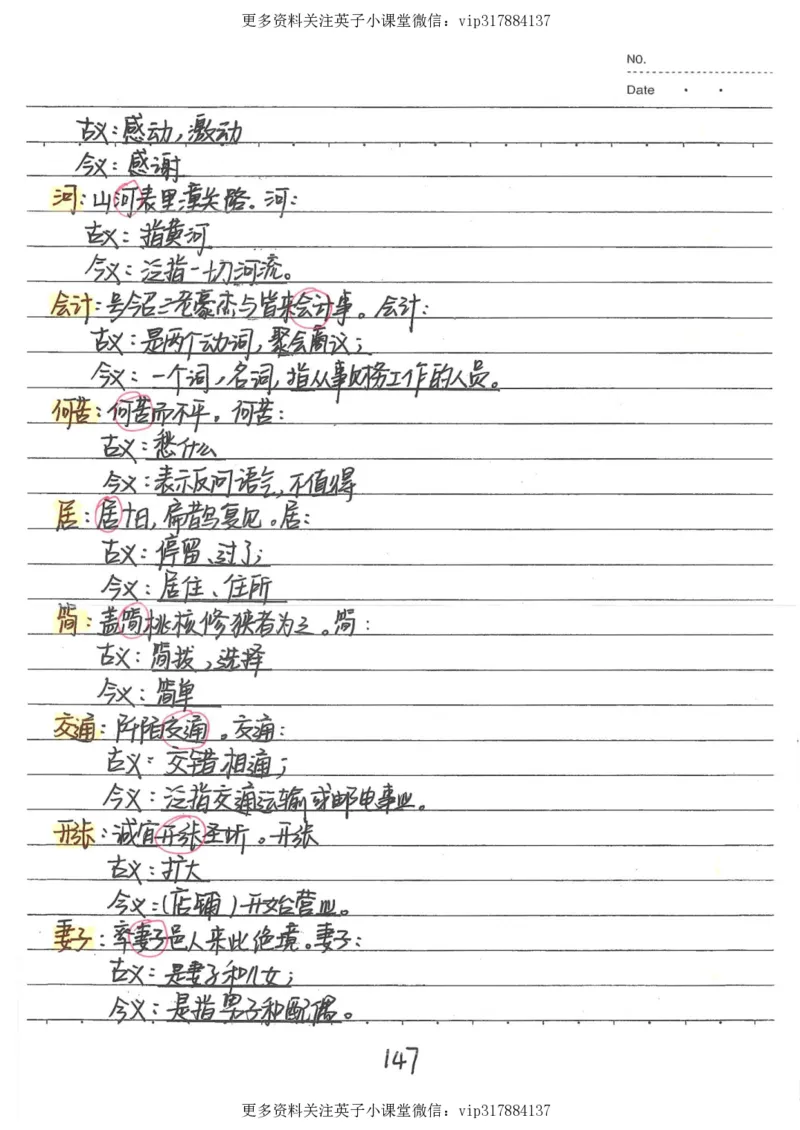 更多资料关注英子小课堂微信：vip317884137
NO.
Date
古义：感动，激动
今义：感谢
河：山河表里潼关路。河：
古义：指黄河
今义：泛指一切河流。
会计：号令召三老豪杰与皆来会计事。会计：
古义：是两个动词，聚会商议；
今义：一个词，名词，指从事财务工作的人员。
何苦：何苦而不平。何苦：
古义：愁什么
今义：表示反问语气，不值得
居：居十日，扁鹊复见。居：
古义：停留、过了；
今义：居住、住所
简：盖简桃核修狭者为之。简：
古义：简拔，选择
今义：简单
交通：阡陌交通。交通：
古义：交错相通；
今义：泛指交通运输或邮电事业。
开张：诚宜开张圣听。开张
古义：扩大
今义：（店铺）开始营业。
妻子：率妻子邑人来此绝境。妻子：
古义：是妻子和儿女；
今义：是指男子和配偶。
147
更多资料关注英子小课堂微信：vip317884137